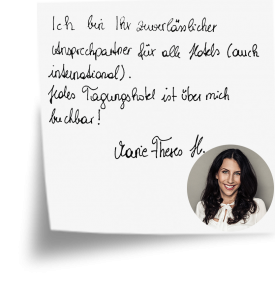 Ich bin Ihr zuverlässlicher
Ansprechpartner für alle Hotels (auch
international).
Jedes Tagungshotel ist über mich
buchbar!
Marie-Theres H.